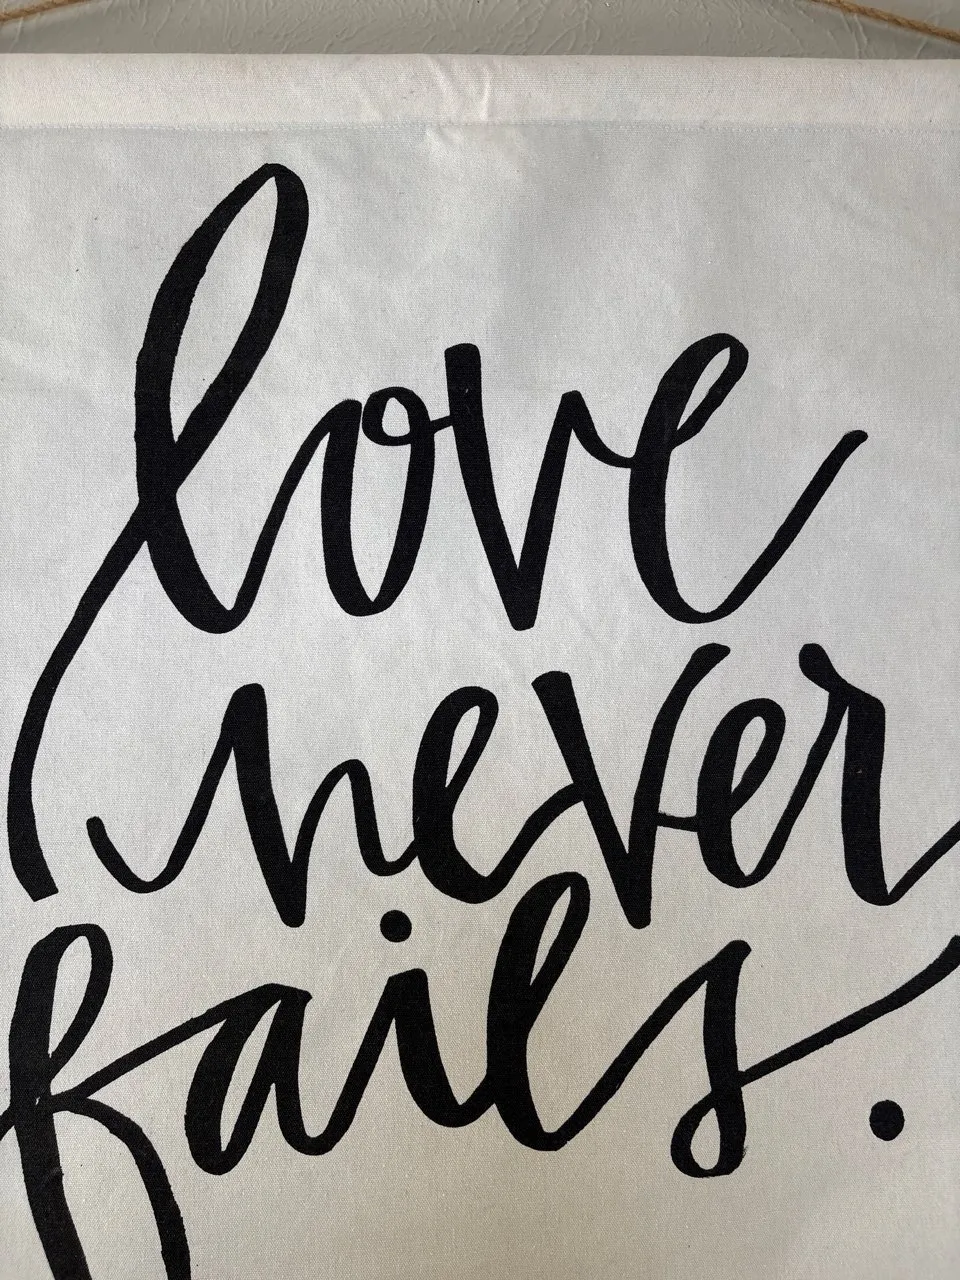 love
never
fails.